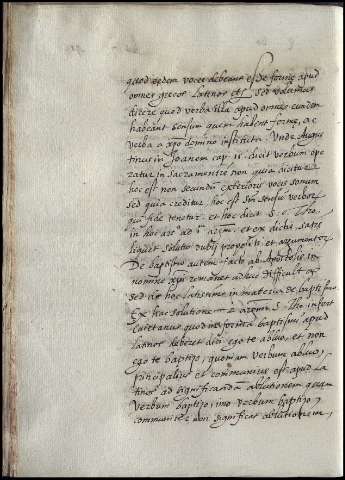 quod eedem voces debeant esse forme apud
omnes grecos Latinos etc sed volumus
dicere quod verba illa apud omnes eundem
habeant sensum quem habent forme, ac
verba a xpo domino instituta. Unde Augus
tinus in Joanem cap. 15. dicit verbum ope
ratur in Sacramentis non quia dicitur
hoc est non secundum exterioris vocis sonum
sed quia creditur hoc est sm sensum verborum
qui fide tenetur. et hoc dicit S. Tho.
in hoc arto ad 1. arom. et ex dictis satis
liquet solutio dubij propositi et argumentorum
De baptismo autem facto ab Apostolis in
nomine xpi remanet adhuc difficultas
sed de hac latissime in materia de baptismo
Ex hac solutione ad arom. S. Tho. infert
Caietanus quod in forma baptismi apud
latinos deberet dici ego te abluo, et non
ego te baptizo, quoniam verbum abluo,
principalius et communius est apud La
tinos ad significandam ablutionem quam
verbum baptizo, imo verbum baptizo,
communiter non significat ablutionem,